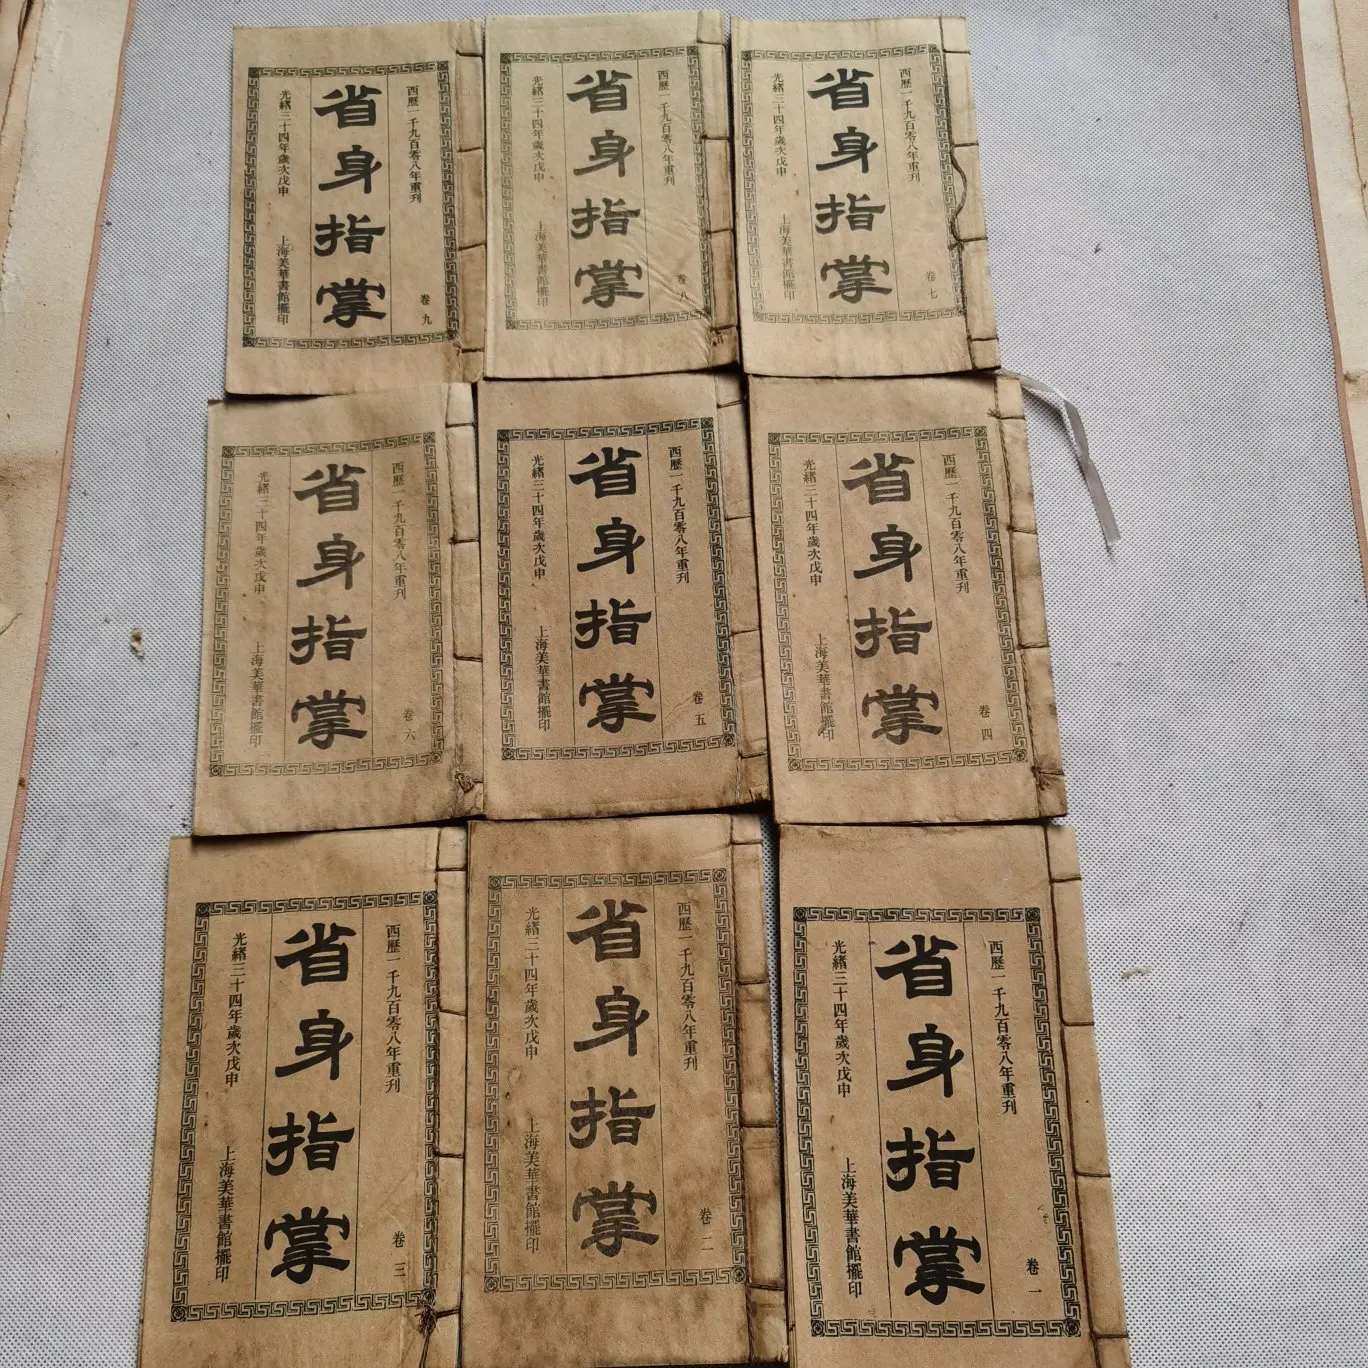 西歷一千九百零八年重刊
卷九
省身指掌
光緒三十四年歲次戊申
上海美華書館擺印
西歷一千九百零八年重刊
卷八
省身指掌
光緒三十四年歲次戊申
上海美華書館擺印
西歷一千九百零八年重刊
卷七
省身指掌
光緒三十四年歲次戊申
上海美華書館擺印
西歷一千九百零八年重刊
卷六
省身指掌
光緒三十四年歲次戊申
上海美華書館擺印
西歷一千九百零八年重刊
卷五
省身指掌
光緒三十四年歲次戊申
上海美華書館擺印
西歷一千九百零八年重刊
卷四
省身指掌
光緒三十四年歲次戊申
上海美華書館擺印
西歷一千九百零八年重刊
卷三
省身指掌
光緒三十四年歲次戊申
上海美華書館擺印
西歷一千九百零八年重刊
卷二
省身指掌
光緒三十四年歲次戊申
上海美華書館擺印
西歷一千九百零八年重刊
卷一
省身指掌
光緒三十四年歲次戊申
上海美華書館擺印